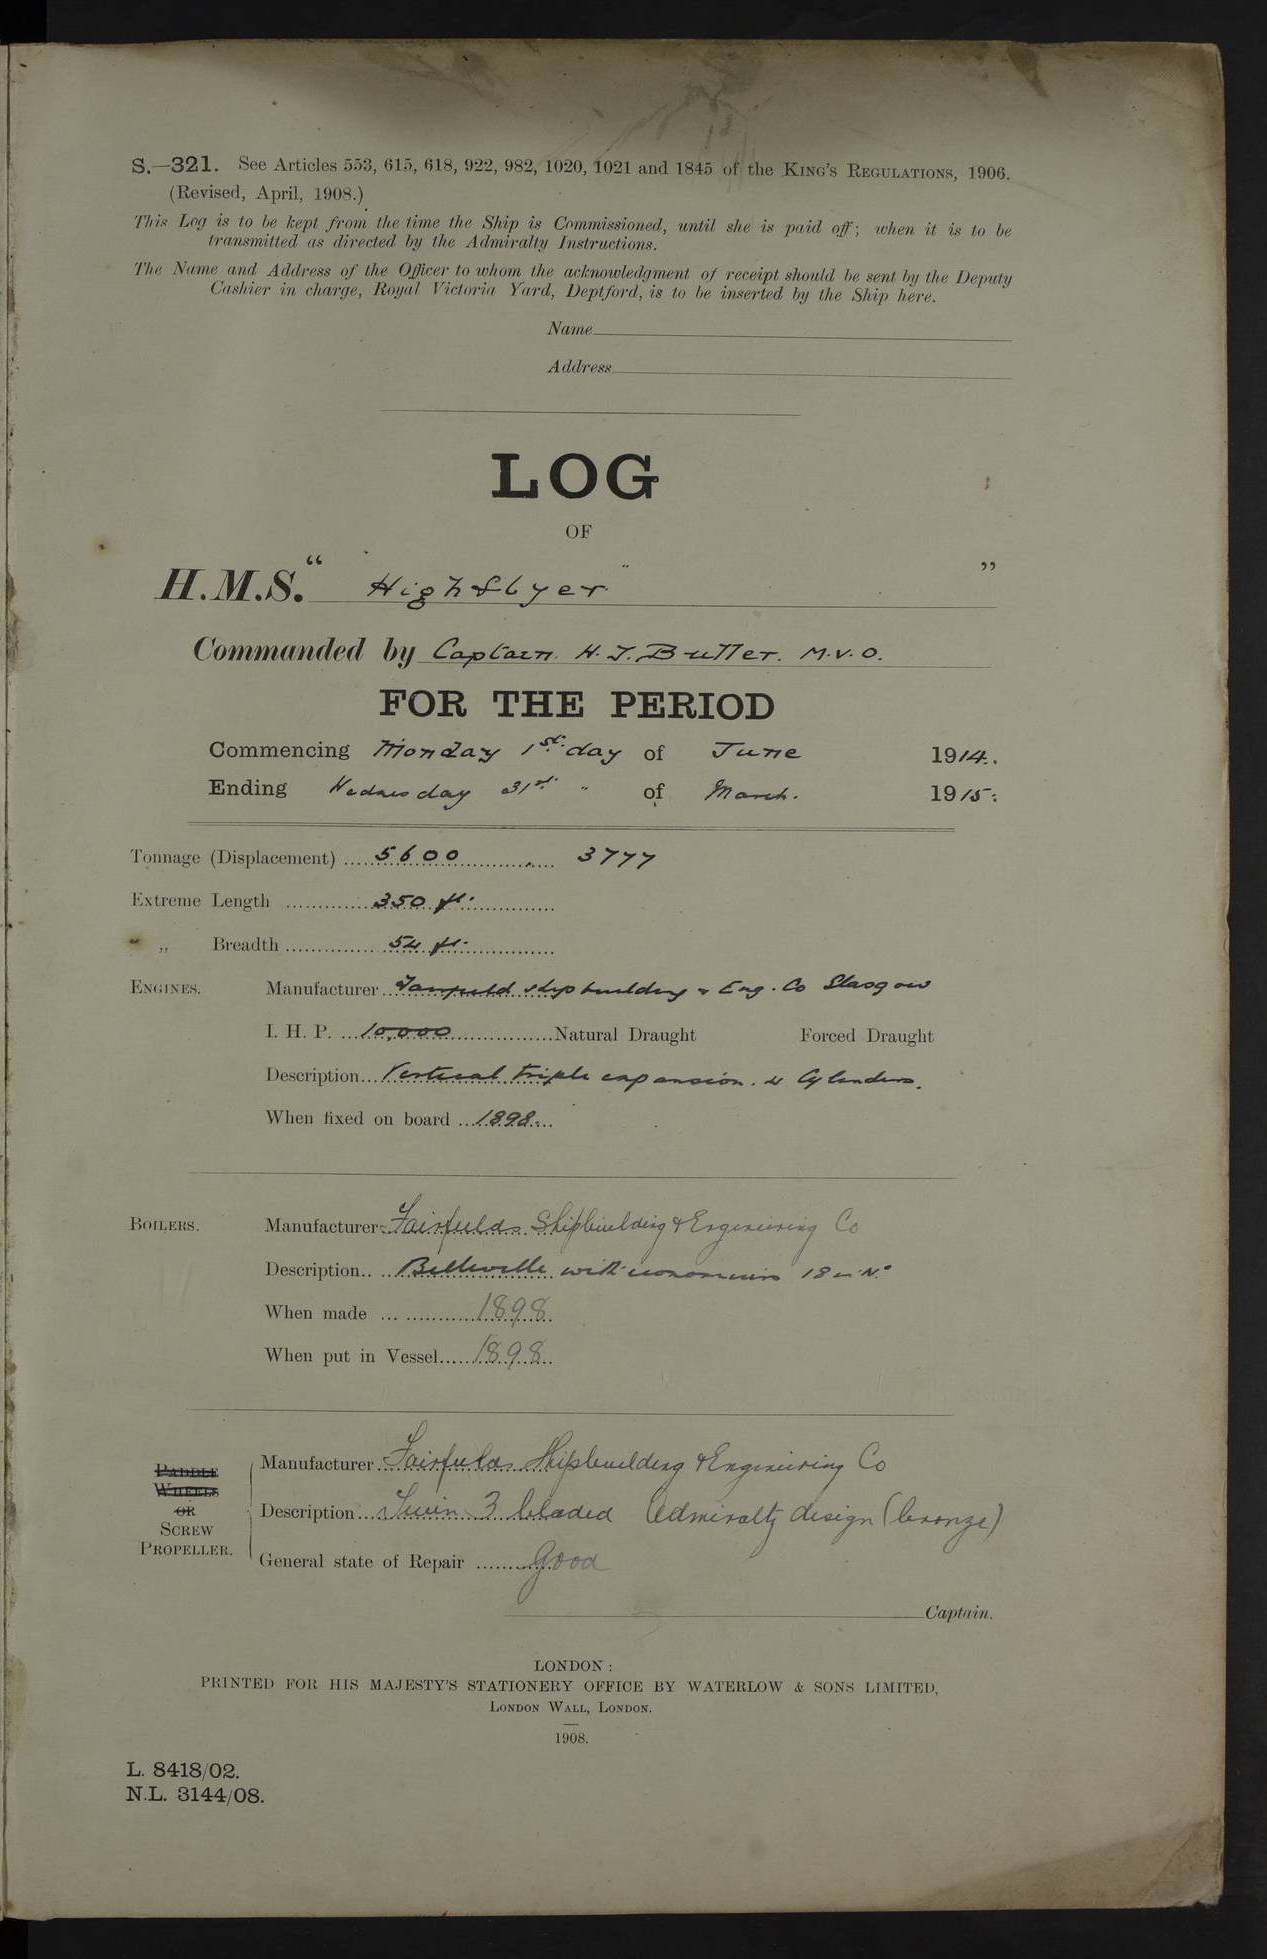 S.—321. See Articles 553, 615, 618, 922, 982, 1020, 1021 and 1845 of the King's Regulations, 1906.
(Revised, April, 1908.)
This Log is to be kept from the time the Ship is Commissioned, until she is paid off; when it is to be
transmitted as directed by the Admiralty Instructions.
The Name and Address of the Officer to whom the acknowledgment of receipt should be sent by the Deputy
Cashier in charge, Royal Victoria Yard, Deptford, is to be inserted by the Ship here.
Name
Address
LOG
OF
H.M.S. "Highflyer"
Commanded by Captain H. T. Buller. M.V.O.
FOR THE PERIOD
Commencing Monday 1st day of June 1914.
Ending Wednesday 31st " of March. 1915.
Tonnage (Displacement) 5600 3777
Extreme Length 350 ft.
" „ Breadth 54 ft.
Engines. Manufacturer Shipbuilding & Eng. Co Glasgow
I. H. P. 10,000 Natural Draught Forced Draught
Description Vertical triple expansion. 4 Cylinders.
When fixed on board 1898
Boilers. Manufacturer Fairfields Shipbuilding & Engineering Co
Description Belleville with economisers 18 in No
When made 1898
When put in Vessel 1898
Paddle Wheels or Screw Propeller.
Manufacturer Fairfields Shipbuilding & Engineering Co
Description Twin 3 bladed Admiralty design (bronze)
General state of Repair Good
Captain.
LONDON:
PRINTED FOR HIS MAJESTY'S STATIONERY OFFICE BY WATERLOW & SONS LIMITED,
London Wall, London.
1908.
L. 8418/02.
N.L. 3144/08.